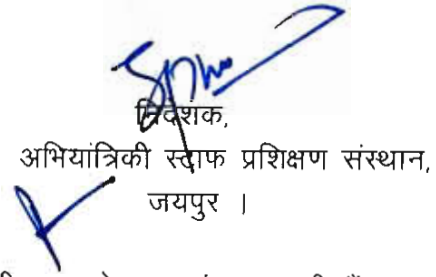 निदेशक,
अभियांत्रिकी स्टाफ प्रशिक्षण संस्थान,
जयपुर ।